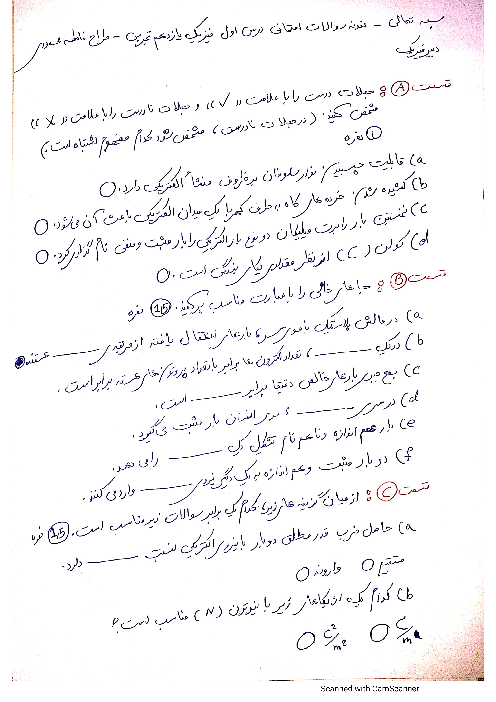 بسمه تعالی - نمونه سوالات امتحانی درس اول فیزیک یازدهم تجربی - طراح فاطمه محمودی
دبیر فیزیک
قسمت A : جملات درست را با علامت « ✓ » و جملات نادرست را با علامت « X »
مشخص کنید. (در جملات نادرست، مشخص شود کدام مفهوم اشتباه است.)
1 نمره
a) قابلیت چسبیدن نوار سلوفان به ظروف، منشأ الکتریکی دارد. ○
b) کشیده شدن خرده های کاه به طرف کهربا یک میدان الکتریکی باعث آن می شود. ○
c) نخستین بار رابرت میلیکان دو نوع بار الکتریکی را بار مثبت و منفی نام گذاری کرد. ○
d) کولن (C) از نظر مقدار یکای بزرگی است. ○
قسمت B : جاهای خالی را با عبارت مناسب پر کنید. 1,5 نمره
a) در مالش پلاستیک با موی سر، بارهای انتقال یافته از نوع ــــــ هستند
b) در یک ــــــ ، تعداد الکترون ها برابر با تعداد پروتون های هسته برابر است.
c) جمع جبری بارهای خالص دقیقا برابر ــــــ است.
d) در سری ــــــ ، موی انسان بار مثبت می گیرد.
e) بار هم اندازه و ناهم نام تشکیل یک ــــــ را می دهد.
f) دو بار مثبت و هم اندازه به یک دیگر نیروی ــــــ وارد می کنند.
قسمت C : از میان گزینه های زیر، کدام یک برای سوالات زیر مناسب است. 1,5 نمره
a) حاصل ضرب قدر مطلق دو بار با نیروی الکتریکی نسبت ــــــ دارد.
مستقیم ○ وارونه ○
b) کدام یک از یکاهای زیر با نیوتون (N) مناسب است؟
○ C²/m² ○
Scanned with CamScanner